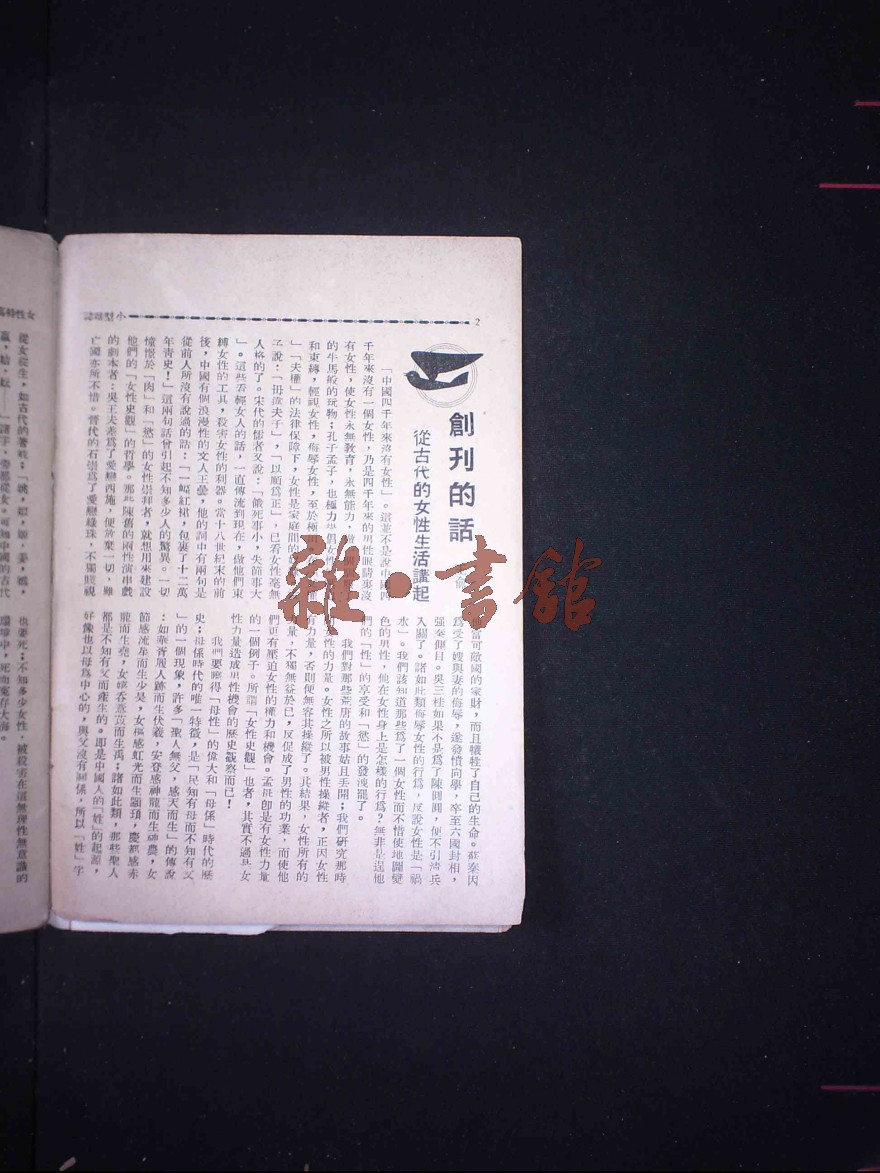 小型雜誌
2
創刊的話
從古代的女性生活講起
「中國四千年來沒有女性」。這並不是說中國四
千年來沒有一個女性,乃是四千年來的男性眼睛裏沒
有女性,使女性永無敎育,永無能力,做
的牛馬般的玩物;孔子孟子,也極力
和束縛,輕視女性,侮辱女性,至於極
「夫權」的法律保障下,女性是家庭間的
子說:「毋違夫子」,「以順爲正」,已看女性毫無
人格的了。宋代的儒者又說:「餓死事小,失節事大
」。這些看輕女人的話,一直傳流到現在,做他們束
縛女性的工具,殺害女性的利器。當十八世紀末的前
後,中國有個浪漫性的文人王曇,他的詞中有兩句是
從前人所沒有說過的話:「一幅紅裙,包裹了十二萬
年靑史!」這兩句話曾引起不知多少人的驚異。一切
憧憬於「肉」和「慾」的女性崇拜者,就想用來建設
他們的「女性史觀」的哲學。那些陳舊的兩性演串戲
的劇本者:吳王夫差爲了愛戀西施,便放棄一切,雖
亡國亦所不惜。晉代的石崇爲了愛戀綠珠,不獨賤視
富可敵國的家財,而且犧牲了自己的生命。蘇秦因
爲受了嫂與妻的侮辱,遂發憤向學,卒至六國封相,
强秦側目。吳三桂如果不是爲了陳圓圓,便不引淸兵
入關了。諸如此類侮辱女性的行爲,反說女性是「禍
水」。我們該知道那些爲了一個女性而不惜使地圖變
色的男性,他在女性身上是怎樣的行爲?無非是逞他
們的「性」的享受和「慾」的發洩罷了。
我們對那些荒唐的故事姑且丟開;我們研究那時
女性的力量。女性之所以被男性操縱者,正因女性
有力量,否則便無容其操縱了。其結果,女性所有的
力量,不獨無益於已,反促成了男性的功業,而使他
們更有壓迫女性的權力和機會。孟母卽是有女性力量
的一個例子。所謂「女性史觀」也者,其實不過是女
性力量造成男性機會的歷史觀察而已!
我們要曉得「母性」的偉大和「母係」時代的歷
史;母係時代的唯一特徵,是「民知有母而不知有父
」的一個現象,許多「聖人無父,感天而生」的傳說
:如華胥履人跡而生伏羲,安登感神龍而生神農,女
節感流星而生少昊,女樞感虹光而生顓頊,慶都感赤
龍而生堯,女嬉吞薏苡而生禹;諸如此類,那些聖人
都是不知有父而產生的。卽是中國人的「姓」的起源,
好像也以母爲中心的,與父沒有關係,所以「姓」字
女性特
從女從生,如古代的著姓;「姚,姬,姒,姜,嬀,
嬴,姞,妘
也要死;不知多少女性,被殺害在這無理性無意識的
雜·書館